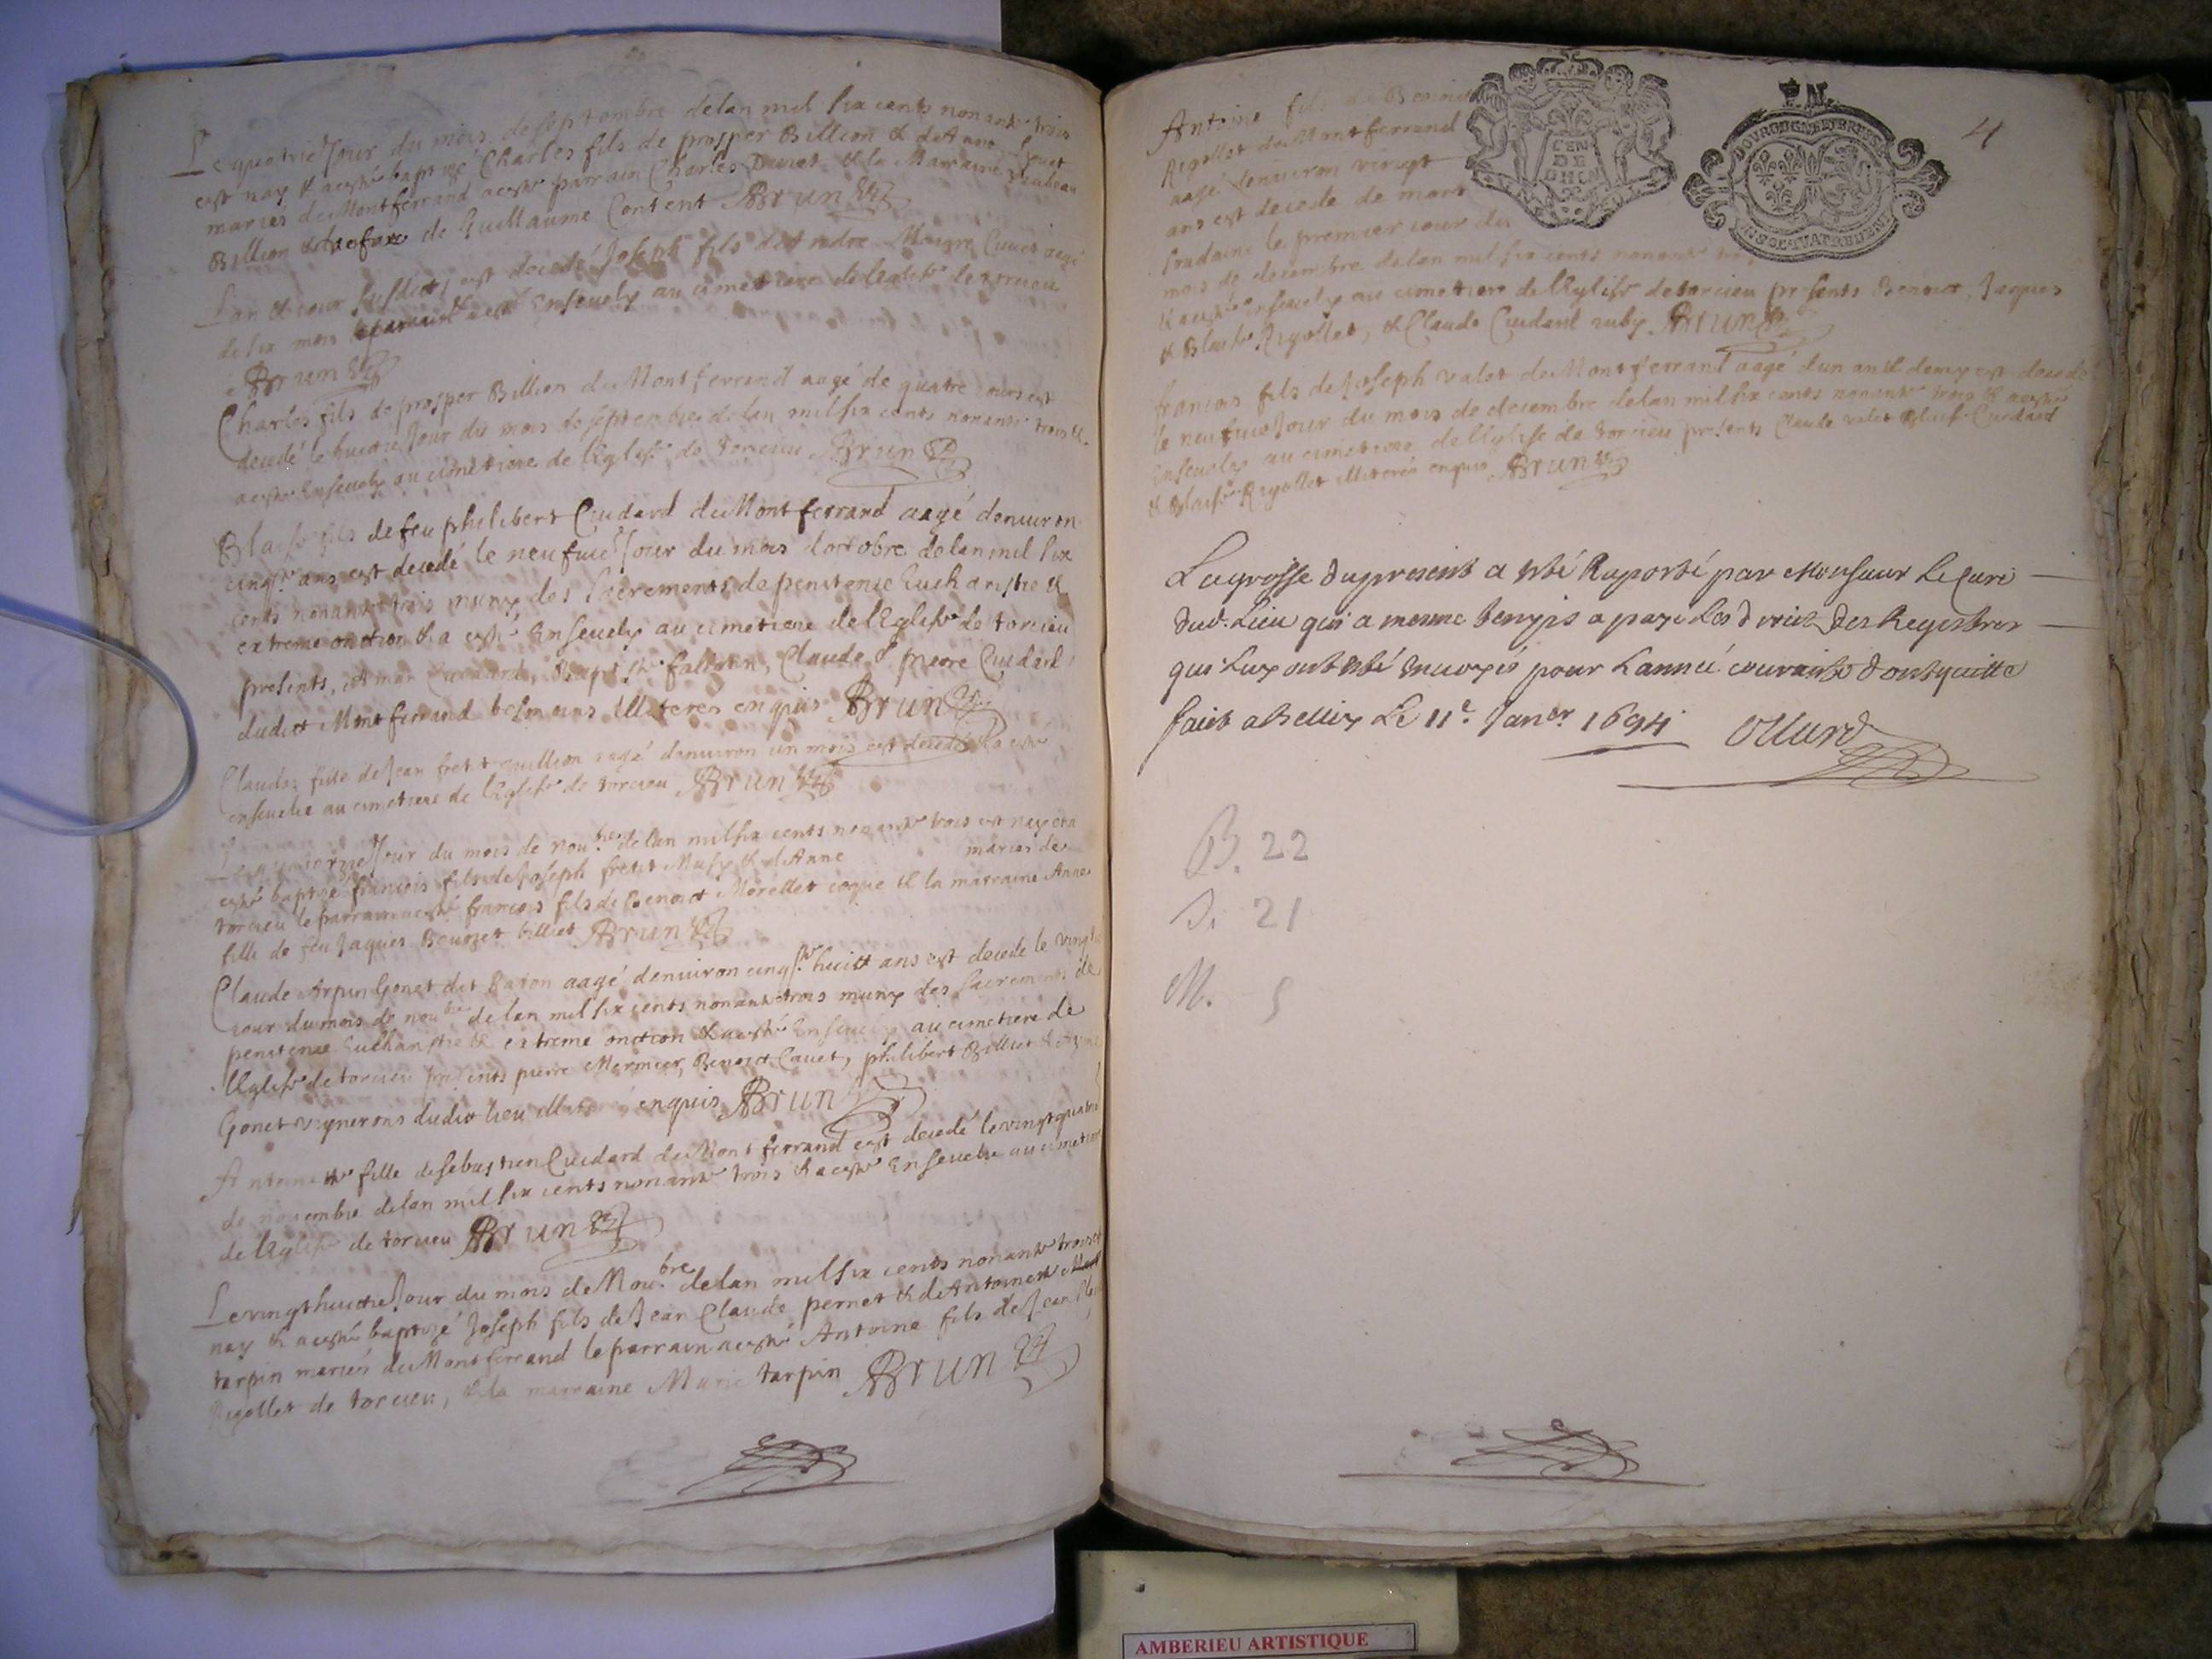 Le quatrie Jour du mois de septembre delan mil six cents nonante trois
est nay & a esté baptizé Charles fils de prosper Billion & de Anne
mariés de Montferrand a esté parrain Charles & la Marraine
Billion de Guillaume Content Brun
Lan & jour susdict est decedé Joseph fils de Andre Maigre aagé
de six mois & a esté Ensevely au cimetiere de leglise de torcieu
Brun
Charles fils de prosper Billion de Montferrand aagé de quatre jours est
decedé le huictie Jour du mois de septembre de lan mil six cents nonante trois &
a esté Ensevely au cimetiere de leglise de torcieu Brun
Blaise fils de feu philibert Cuidard de Montferrand aagé denuiron
cinqte ans est decedé le neufuie Jour du mois doctobre delan mil six
cents nonante trois muny des sacrements de penitence Eucharistie &
extreme onction & a esté Ensevely au cimetiere de leglise de torcieu
presents, Cuidard, Claude & pierre Cuidard
dudict Montferrand illiteres enquis Brun
Claudes fille de Jean fretit aagé denuiron un mois est decedé & a esté
ensevelie au cimetiere de leglise de torcieu Brun
Le quatorzie Jour du mois de Noubre delan mil six cents nonante trois est nay & a
esté baptisé francois fils de Joseph fretit Musy & de Anne mariés de
torcieu le parrain a esté francois fils de Benoict Morellet & la marraine Anne
fille de feu Jaques billiet Brun
Claude Arpin Gonet dit Baron aagé denuiron cinqte huict ans est decede le vingt
jour du mois de noubre de lan mil six cents nonante trois muny des sacrements de
penitence Eucharistie & extreme onction & a esté Ensevely au cimetiere de
leglise de torcieu presents pierre Mermier, Benoict Cauet, philibert Billiet &
Gonet vignerons dudict lieu enquis Brun
Antoinette fille de sebastien Cuidard de Montferrand est decedé le vingt quatrie
de novembre de lan mil six cents nonante trois & a esté Ensevelie au cimetiere
de leglise de torcieu Brun
Le vingt huictie Jour du mois de Noubre delan mil six cents nonante trois est
nay & a esté baptizé Joseph fils de Jean Claude pernet & de Antoinette
tarpin mariés de Montferrand le parrain a esté Antoine fils de Jean
Rigollet de torcieu, & la marraine Marie tarpin Brun
4
Antoine fils de Benoict
Rigollet de Montferrand
aagé denuiron vingt
ans est decede de mort
soudaine le premier jour du
mois de decembre delan mil six cents nonante
& a esté ensevely au cimetiere de leglise de torcieu presents Benoict, Jaques
& Blaise Rigollet, & Claude Cuidard Brun
francois fils de Joseph valet de Montferrand aagé dun an & demy est decede
le neufuie Jour du mois de decembre delan mil six cents nonante trois & a esté
Ensevely au cimetiere de leglise de torcieu presents Claude valet Cuidard
& Blaise Rigollet illiterés enquis Brun
La grosse du present a esté Raporté par Monsieur Le Curé
dud. Lieu qui a mesme temps a payé Les droictz des Registres
qui Luy ont esté enuoyés pour Lannée courante dont quitte
faict a Belley Le 11e. Janer 1694 Ollard
B. 22
S. 21
M. 5
AMBERIEU ARTISTIQUE